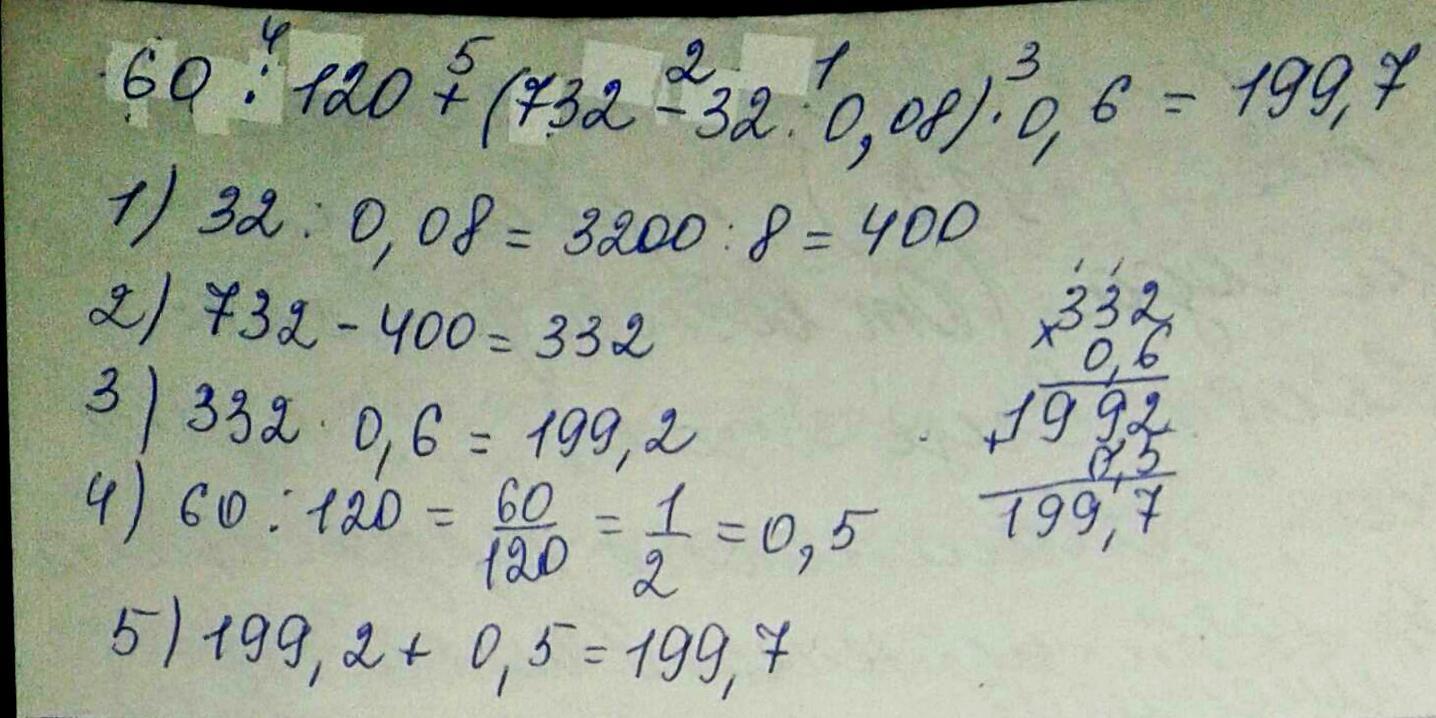 4 5 2 1 3
60 : 120 + (732 - 32 : 0,08) · 0,6 = 199,7
1) 32 : 0,08 = 3200 : 8 = 400
2) 732 - 400 = 332
3) 332 · 0,6 = 199,2
4) 60 : 120 = 60/120 = 1/2 = 0,5
5) 199,2 + 0,5 = 199,7
1 1
332
× 0,6
199,2
+ 0,5
199,7